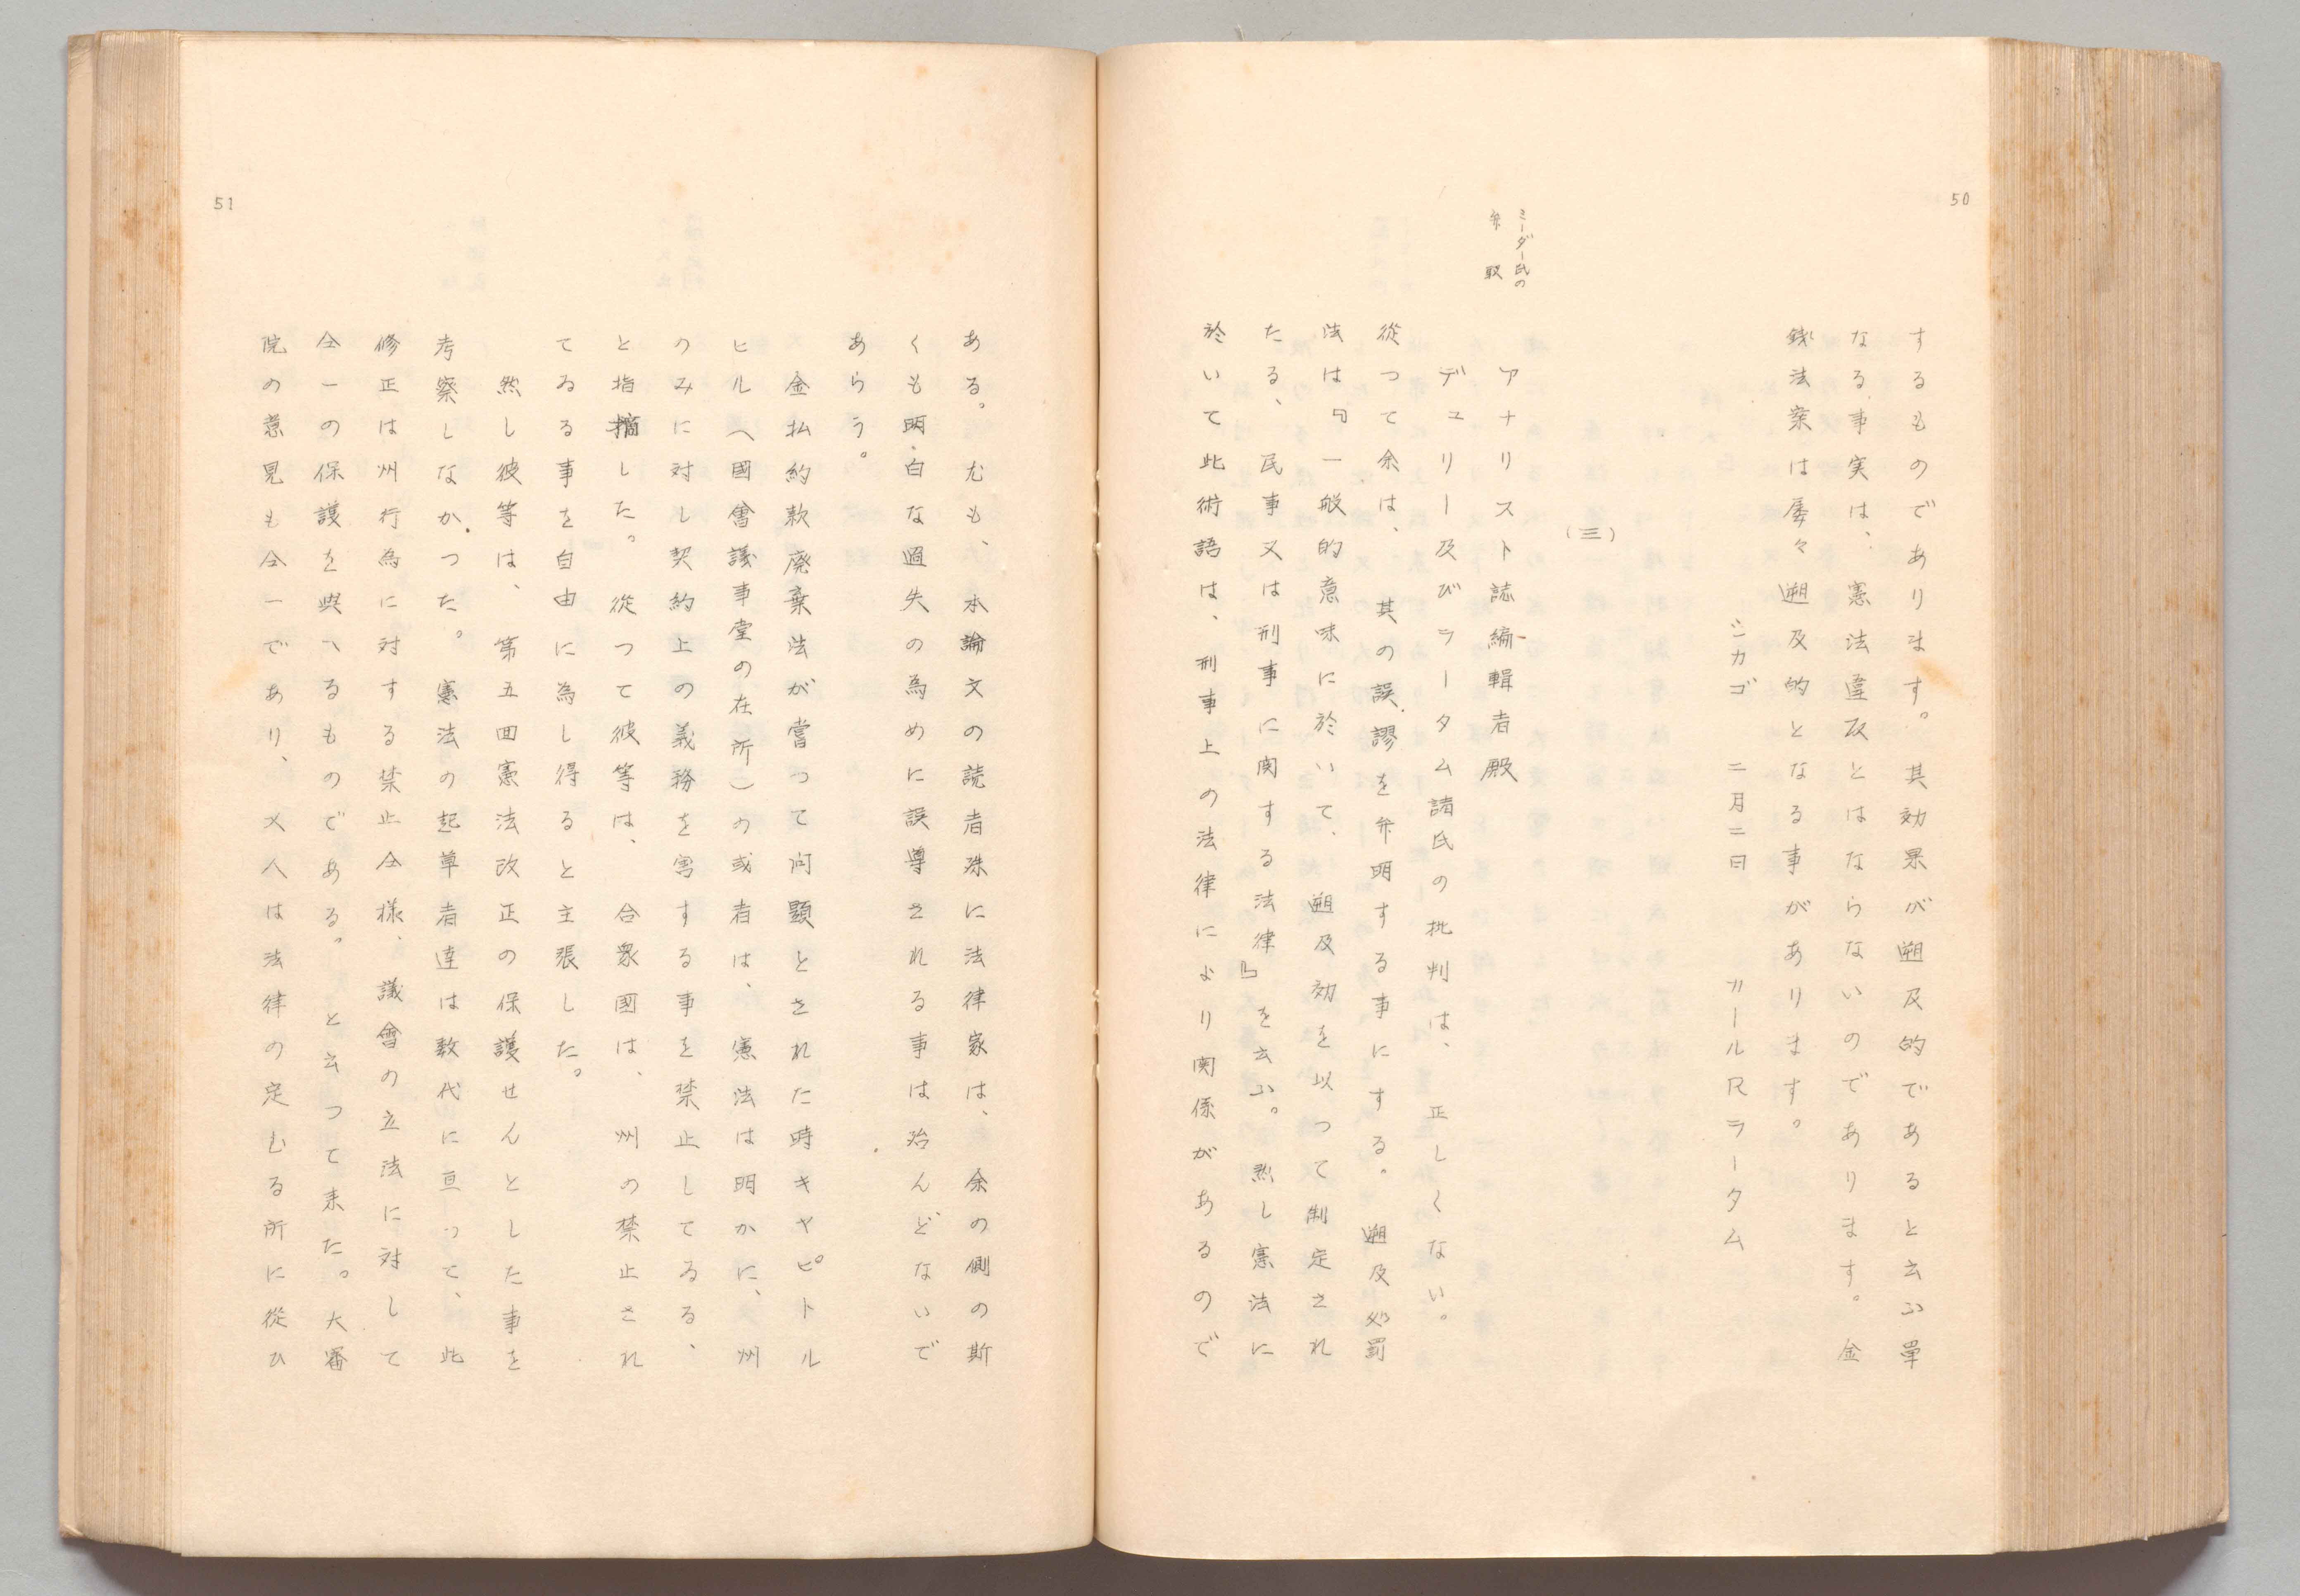 50
するものであります。其効果が遡及的であると云ふ單
なる事実は、憲法違反とはならないのであります。金
銭法案は屡々遡及的となる事があります。
シカゴ 二月二日 カールRラータム
(三)
ミーダー氏の
弁駁
アナリスト誌編輯者殿
デュリー及びラータム諸氏の批判は、正しくない。
從つて余は、其の誤謬を弁明する事にする。遡及処罰
法は『一般的意味に於いて、遡及効を以つて制定され
たる、民事又は刑事に関する法律』を云ふ。然し憲法に
於いて此術語は、刑事上の法律により関係があるので
51
ある。尤も、本論文の読者殊に法律家は、余の側の斯
くも明白な過失の為めに誤導される事は殆んどないで
あらう。
金払約款廃棄法が嘗つて問題とされた時キャピトル
ヒル(國會議事堂の在所)の或者は、憲法は明かに、州
のみに対し契約上の義務を害する事を禁止してゐる、
と指摘した。從つて彼等は、合衆國は、州の禁止され
てゐる事を自由に為し得ると主張した。
然し彼等は、第五回憲法改正の保護せんとした事を
考察しなかつた。憲法の起草者達は数代に亘つて、此
修正は州行為に対する禁止仝様、議會の立法に対して
仝一の保護を與へるものである。と云つて来た。大審
院の意見も仝一であり、又人は法律の定むる所に從ひ